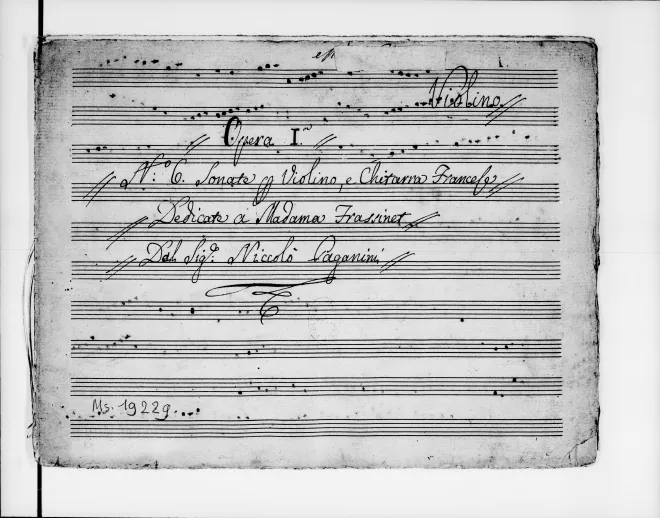 Violino
Opera I.a
N.o 6. Sonate p Violino, e Chitarra Francese
Dedicate a Madama Frassinet
Dal Sig.r Niccolò Paganini
Ms. 19229.